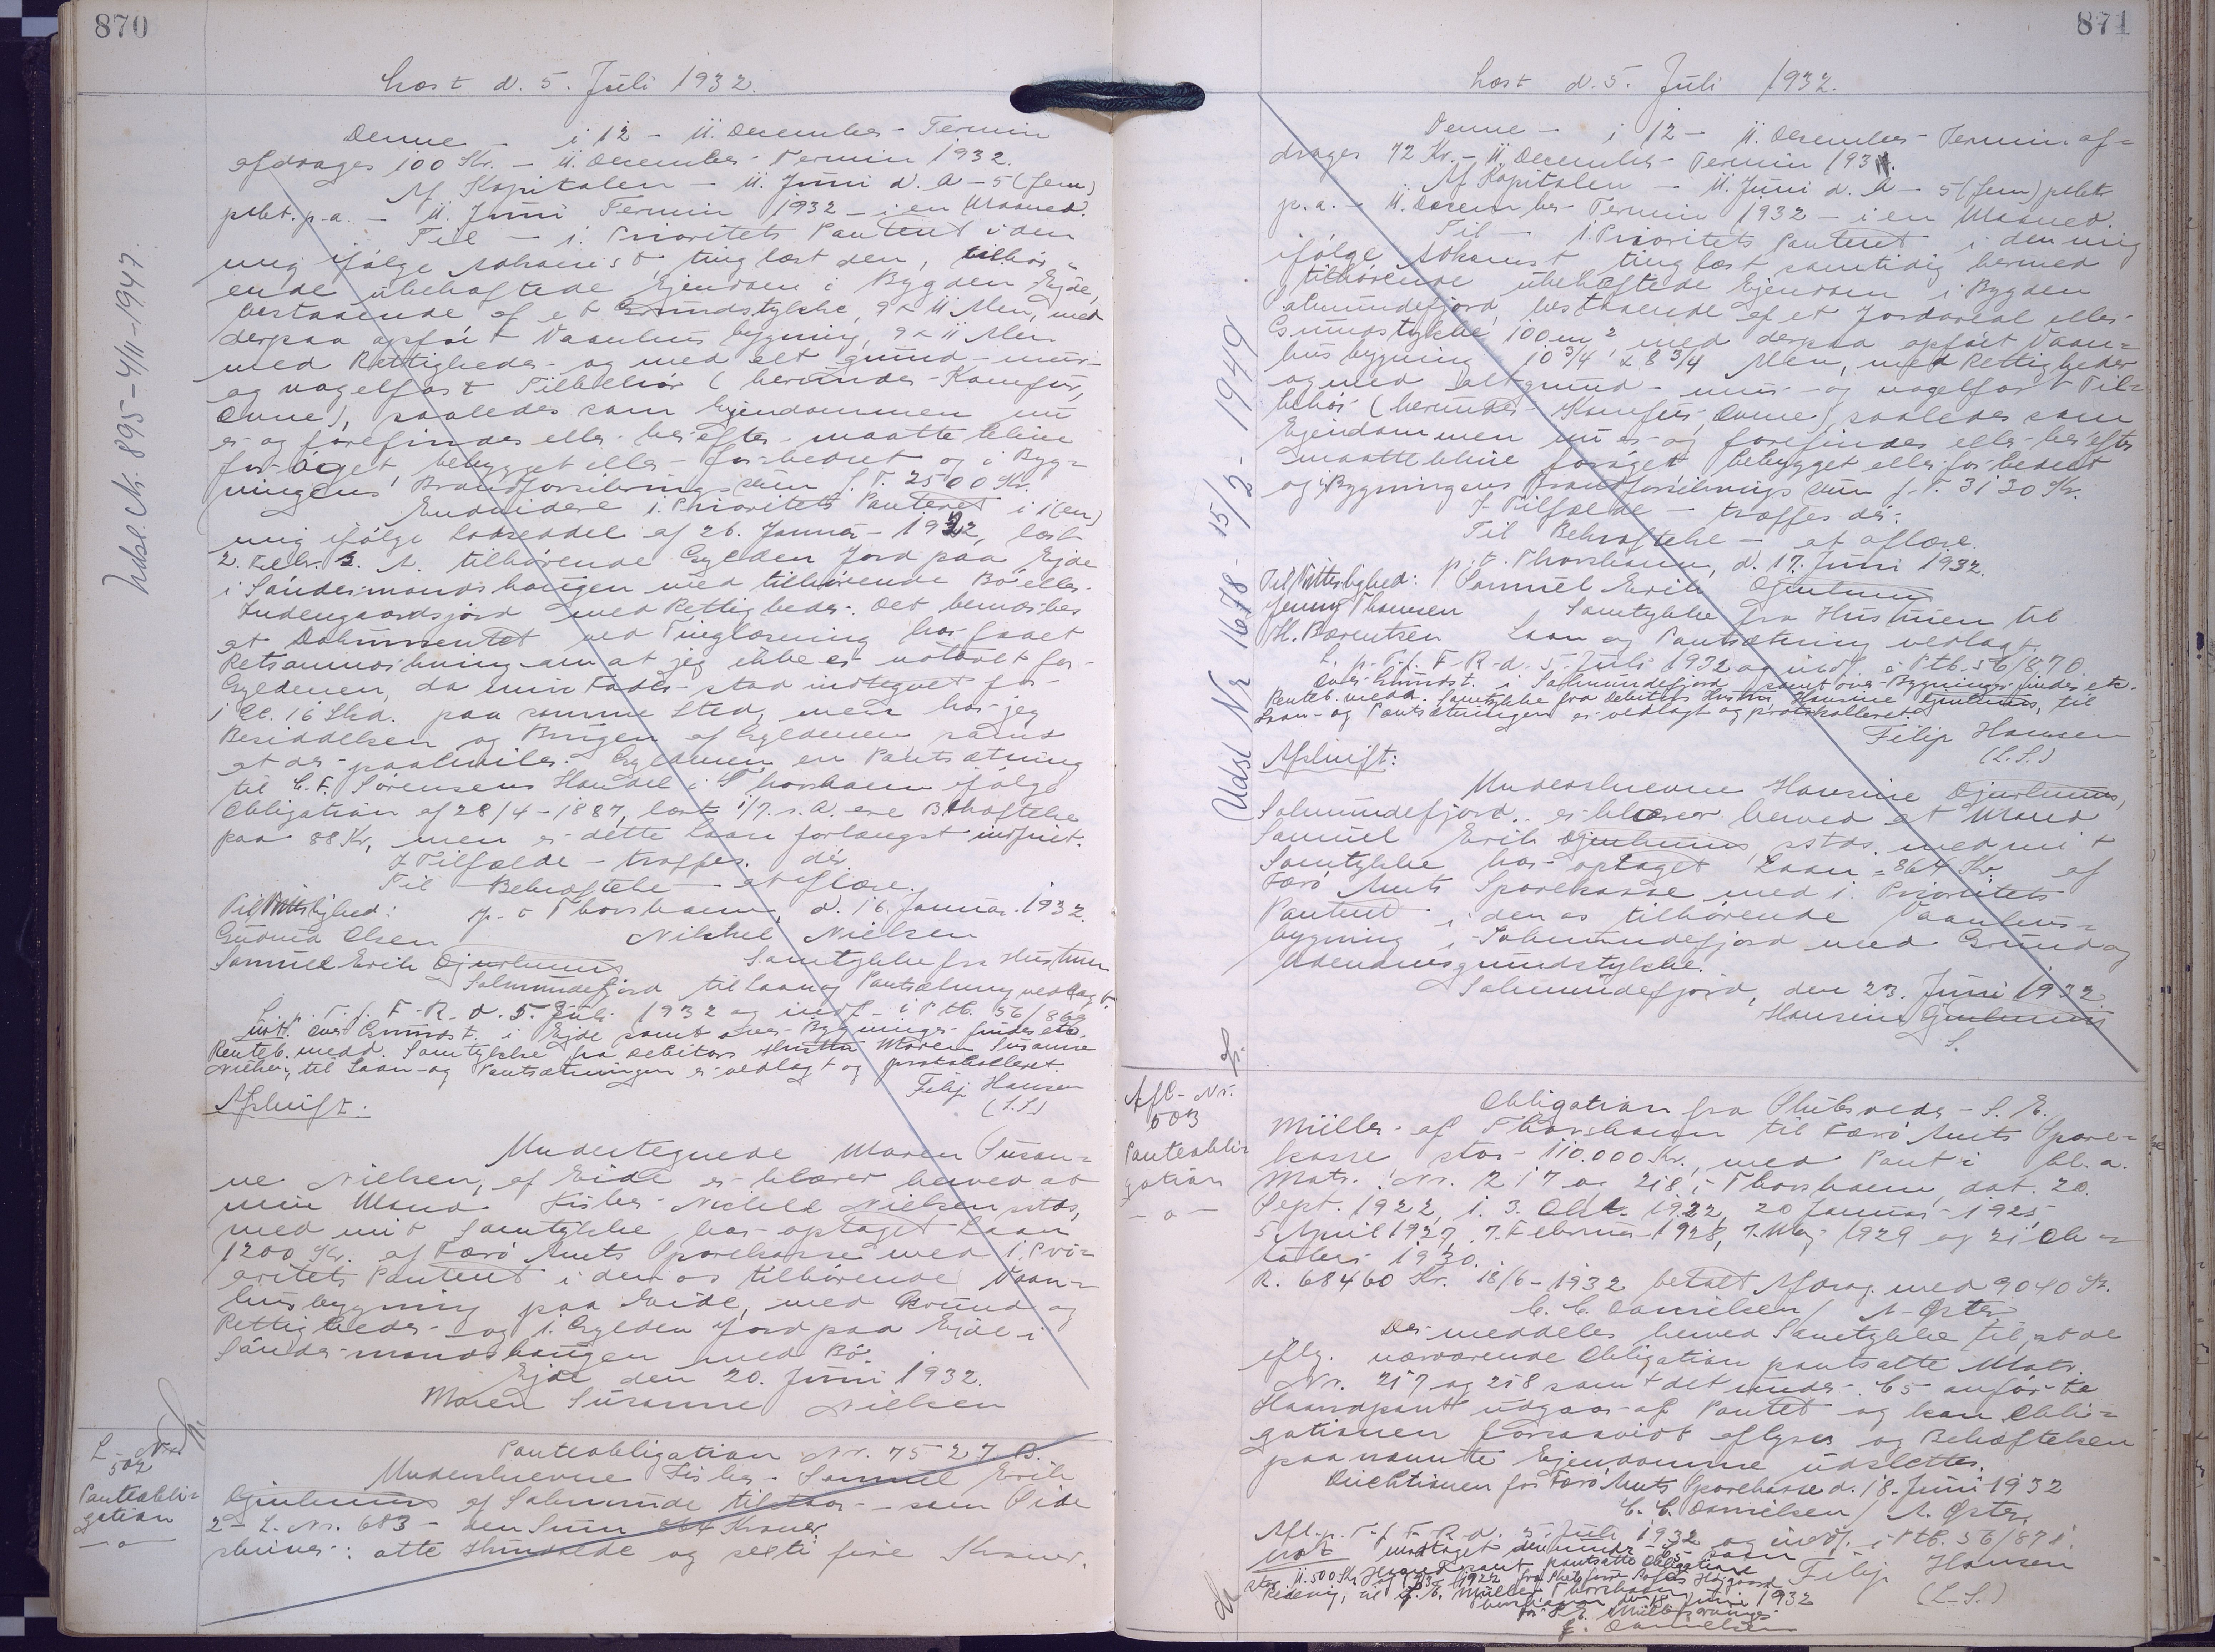 870
Læst d. 5. Juli 1932.
Denne – i 12 – 11. December Termin
afdrages 100 Kr. – 11. December Termin 1932.
Af Kapitalen – 11. Juni d. A – 5 (fem)
pCt. p.a. – 11. Juni Termin 1932 – i en Maaned.
Til – 1. Prioritets Panteret i den
mig ifølge Adkomst, tinglæst den, tilhør-
ende ubehæftede Ejendom i Bygden Ejde,
bestaaende af et Grundstykke, 9 x 11 Alen, med
derpaa opført Vaanhusbygning, 9 x 11 Alen
med Rettigheder og med alt grund- mur-
og nagelfast Tilbehør (herunder Komfur,
Ovne), saaledes som Ejendommen nu
er og forefindes eller herefter maatte blive
forøget, bebygget eller forbedret og i Byg-
ningens Brandforsikringssum p.T. 2500 Kr.
Endvidere 1. Prioritets Panteret i 1 (en)
mig ifølge Lodseddel af 26. Januar 1932, læst
2. Febr. s. A. tilhørende Gylden Jord paa Ejde
i Sándermandshaugen med tilhørende Bø eller
Indengaardsjord med Rettigheder. Det bemærkes
at Dokumentet ved Tinglæsning har faaet
Retsanmærkning om at jeg ikke er noteret for
Gyldenen, da min Fader stod indtegnet for
1 Gl. 16 Skd. paa samme Sted, men har jeg
Besiddelsen og Brugen af Gyldenen samt
at der paahviler Gyldenen en Pantsætning
til C. F. Sørensens Handel i Thorshavn ifølge
Obligation af 28/4-1887, læst 1/7. s.A. ere Behæftelse
paa 88 Kr, men er dette Laan forlængst indfriet.
I Tilfælde – træffes der.
Til Bekræftelse – at aflæse.
Til Vitterlighed: p.t. Thorshavn, d. 16 Januar 1932.
Gudrid Olsen Nikkel Nielsen
Samuel Erik Djurhuus Samtykke fra Hustruen
Solmundefjord til Laan og Pantsætning vedlagt.
L. p. T. f. F. R. d. 5. Juli 1932 og indf. i Ptb. 56/869
Udst. over Grundst. i Ejde samt over Bygninger findes etc.
Renteb. medd. Samtykke fra Debitors Hustru Maren Susanne
Nielsen, til Laan- og Pantsætningen er vedlagt og protokolleret.
Filip Hansen
(L.S.)
Afskrift:
Undertegnede Maren Susan-
ne Nielsen, af Eide erklærer herved at
min Mand Fisker Nickell Nielsen sstds,
med mit Samtykke har optaget Laan
1200 Kr. af Færø Amts Sparekasse med 1. Pri-
oritets Panteret i den os tilhørende Vaan-
husbygning paa Eide, med Grund og
Rettigheder og 1. Gylden Jord paa Ejde i
Sánder-mandshaugen med Bø.
Ejde den 20. Juni 1932.
Maren Susanne Nielsen
L - Nr.
502
Panteobli-
gation
— o —
Panteobligation Nr. 7527 B.
Underskrevne Fisker Samuel Erik
Djurhuus af Solmunde tilstaar – som Side
2 – L. Nr. 683 – den Sum 864 Kroner
skriver: otte Hundrede og seksti fire Kroner.
Udsl. Nr. 895 – 4/11-1947.
871
Læst d. 5. Juli 1932.
Denne – i 12 – 11. December Termin af-
drages 72 Kr. – 11. December Termin 193
Af Kapitalen – 11. Juni d. A – 5 (fem) pCt
p.a. – 11. December Termin 1932 – i en Maaned.
Til – 1. Prioritets Panteret i den mig
ifølge Adkomst tinglæst samtidig hermed
tilhørende ubehæftede Ejendom i Bygden
Solmundefjord, bestaaende af et Jordareal eller
Grundstykke 100 m2 med derpaa opført Vaan-
husbygning 10 3/4 x 8 3/4 Alen, med Rettigheder
og med alt grund- mur- og nagelfast Til-
behør (herunder Komfur, Ovne), saaledes som
Ejendommen nu er og forefindes eller herefter
maatte blive forøget, bebygget eller forbedret
og i Bygningens Brandforsikringssum p.T. 3130 Kr.
I Tilfælde – træffes der.
Til Bekræftelse – at aflæse.
p.t. Thorshavn, d. 17. Juni 1932.
Til Vitterlighed: Samuel Erik Djurhuus
Jenny Thomsen Samtykke fra Hustruen til
H. Bærentsen Laan og Pantsætning vedlagt.
L. p. T. f. F. R. d. 5. Juli 1932 og indf. i Ptb. 56/870
over Grundst. i Solmundefjord samt over Bygninger findes etc.
Renteb. medd. Samtykke fra Debitors Hustru, Hansine Djurhuus, til
Laan- og Pantsætningen er vedlagt og protokolleret.
Filip Hansen
(L.S.)
Afskrift:
Underskrevne Hansine Djurhuus,
Solmundefjord.. erklærer herved at Mand
Samuel Erik Djurhuus, sstds. med mit
Samtykke har optaget Laan = 864 Kr. af
Færø Amts Sparekasse med 1. Prioritets
Panteret i den os tilhørende Vaanhus-
bygning i Solmundefjord med Grund og
Udendørsgrundstykke.
Solmundefjord, den 23. Juni 1932
Hansine Djurhuus
S.
Udsl. Nr 1678 - 15/2 - 1949
Afl - Nr.
503
Panteobli-
gation
— o —
Obligation fra Skibsreder S. E.
Müller af Thorshavn til Færø Amts Spare-
kasse stor 110.000 Kr., med Pant i bl. a.
Matr. Nr. 217 og 218 i Thorshavn, dat. 20.
Sept. 1922, l. 3. Okt. 1922, 20 Januar 1925,
5 April 1927, 7. Februar 1928, 7. Maj 1929 og 21 Ok-
tober 1930.
R. 68460 Kr. 18/6-1932 betalt Afdrag med 9040 Kr.
C. C. Danielsen / A. Øster
Der meddeles herved Samtykke til, at de
iflg. nærværende Obligation pantsatte Matr.
Nr. 217 og 218 samt det under C5 anførte
Haandpant udgaar af Pantet og kan Obli-
gationen forsaavidt aflyses og Behæftelsen
paa nævnte Ejendomme udslettes.
Direktionen for Færø Amts Sparekasse d. 18. Juni 1932
C. C. Danielsen / A. Øster,
Afl. p. T. f. F. R. d. 5. Juli 1932 og indf. i Ptb. 56/871.
modtaget den under C5 som
Haandpant pantsatte Obligation
Filip Hansen
(L.S.)
Thorshavn den 18 Juni 1932
C. Danielsen